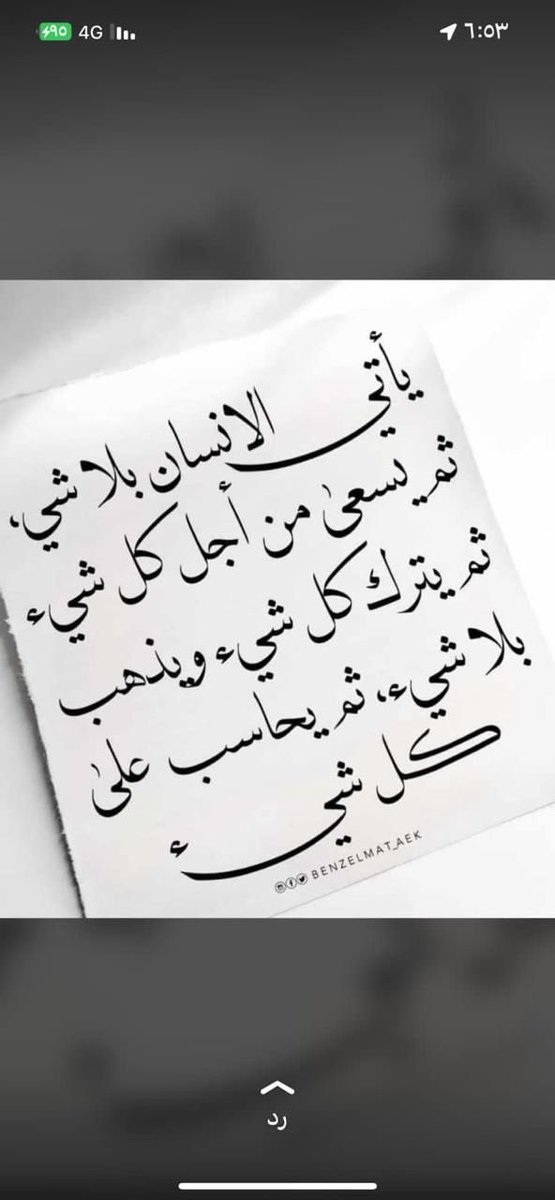 ٩٥ 4G ٦:٥٣
يأتي الانسان بلا شيء،
ثم يسعىٰ من أجل كل شيء
ثم يترك كل شيء ويذهب
بلا شيء، ثم يحاسب علىٰ
كل شيء
BENZELMAT_AEK
رد